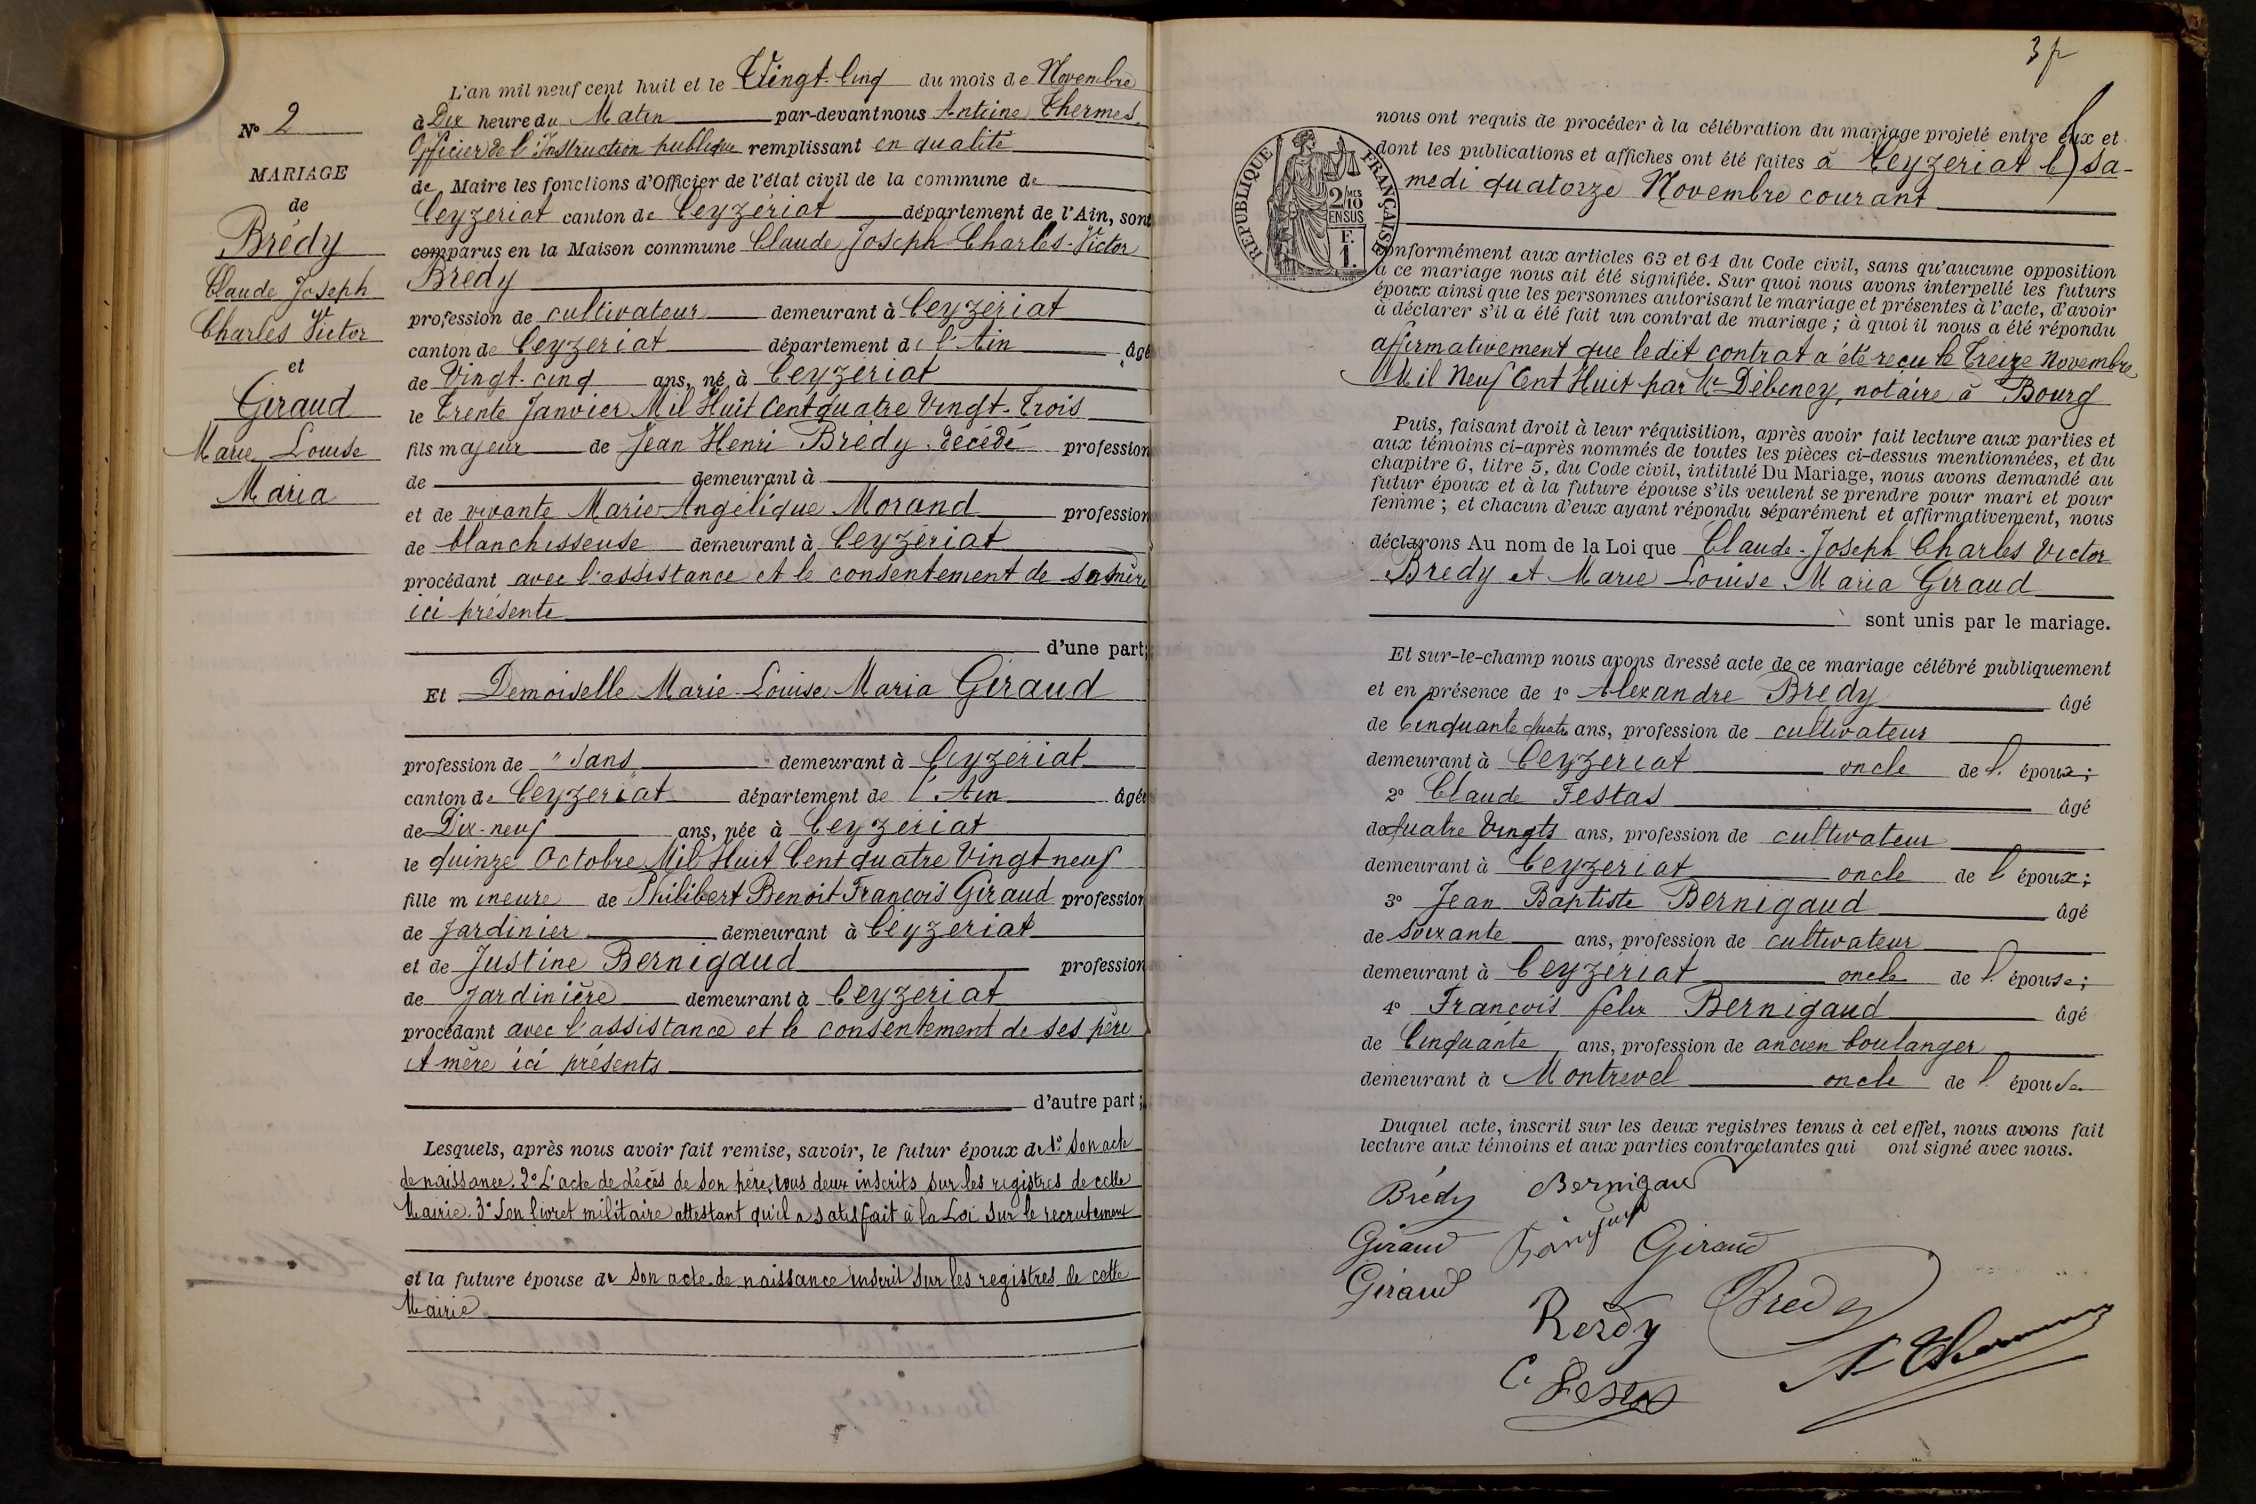 L'an mil neuf cent huit et le Vingt-Cinq du mois de Novembre
à Dix heure du Matin par-devant nous Antoine Thermes,
Officier de l'Instruction publique remplissant en qualité
de Maire les fonctions d'Officier de l'état civil de la commune de
Ceyzeriat canton de Ceyzériat département de l'Ain, sont
comparus en la Maison commune Claude Joseph Charles-Victor
Brédy
profession de cultivateur demeurant à Ceyzériat
canton de Ceyzeriat département de l'Ain âgé
de Vingt-cinq ans, né à Ceyzériat
le Trente Janvier Mil Huit Cent quatre Vingt-Trois
fils majeur de Jean Henri Brédy, décédé profession
de demeurant à
et de vivante Marie-Angélique Morand profession
de blanchisseuse demeurant à Ceyzériat
procédant avec l'assistance et le consentement de sa mère
ici présente
d'une part;
Et Demoiselle Marie-Louise Maria Giraud
profession de " sans demeurant à Ceyzériat
canton de Ceyzeriat département de l'Ain âgée
de Dix-neuf ans, née à Ceyzériat
le quinze Octobre Mil Huit Cent quatre Vingt-neuf
fille mineure de Philibert Benoit François Giraud profession
de Jardinier demeurant à Ceyzeriat
et de Justine Bernigaud profession
de Jardinière demeurant à Ceyzeriat
procédant avec l'assistance et le consentement de ses père
et mère ici présents
d'autre part;
Lesquels, après nous avoir fait remise, savoir, le futur époux de 1º Son acte
de naissance. 2º L'acte de décés de son père, tous deux inscrits sur les registres de cette
Mairie. 3º Son livret militaire attestant qu'il a satisfait à la Loi sur le recrutement
et la future épouse de son acte de naissance inscrit sur les registres de cette
Mairie
Nº 2
MARIAGE
de
Brédy
Claude Joseph
Charles Victor
et
Giraud
Marie Louise
Maria
3
RÉPUBLIQUE FRANÇAISE
2/10
EN SUS
F.
1.
nous ont requis de procéder à la célébration du mariage projeté entre eux et
dont les publications et affiches ont été faites à Ceyzeriat le Sa-
medi quatorze Novembre courant
conformément aux articles 63 et 64 du Code civil, sans qu'aucune opposition
à ce mariage nous ait été signifiée. Sur quoi nous avons interpellé les futurs
époux ainsi que les personnes autorisant le mariage et présentes à l'acte, d'avoir
à déclarer s'il a été fait un contrat de mariage; à quoi il nous a été répondu
affirmativement que ledit contrat a été reçu le Treize Novembre
Mil Neuf Cent Huit par Me Débeney, notaire à Bourg
Puis, faisant droit à leur réquisition, après avoir fait lecture aux parties et
aux témoins ci-après nommés de toutes les pièces ci-dessus mentionnées, et du
chapitre 6, titre 5, du Code civil, intitulé Du Mariage, nous avons demandé au
futur époux et à la future épouse s'ils veulent se prendre pour mari et pour
femme; et chacun d'eux ayant répondu séparément et affirmativement, nous
déclarons Au nom de la Loi que Claude-Joseph Charles Victor
Bredy et Marie Louise Maria Giraud
sont unis par le mariage.
Et sur-le-champ nous avons dressé acte de ce mariage célébré publiquement
et en présence de 1º Alexandre Bredy âgé
de Cinquante quatre ans, profession de cultivateur
demeurant à Ceyzeriat oncle de l' époux;
2º Claude Festas âgé
de quatre Vingts ans, profession de cultivateur
demeurant à Ceyzeriat oncle de l' époux;
3º Jean Baptiste Bernigaud âgé
de Soixante ans, profession de cultivateur
demeurant à Ceyzériat oncle de l' épouse;
4º François felix Bernigaud âgé
de Cinquante ans, profession de ancien boulanger
demeurant à Montrevel oncle de l' épouse
Duquel acte, inscrit sur les deux registres tenus à cet effet, nous avons fait
lecture aux témoins et aux parties contractantes qui ont signé avec nous.
Brédy Bernigaud
Giraud Giraud
Giraud
Bredy
C. Festas A Thermes